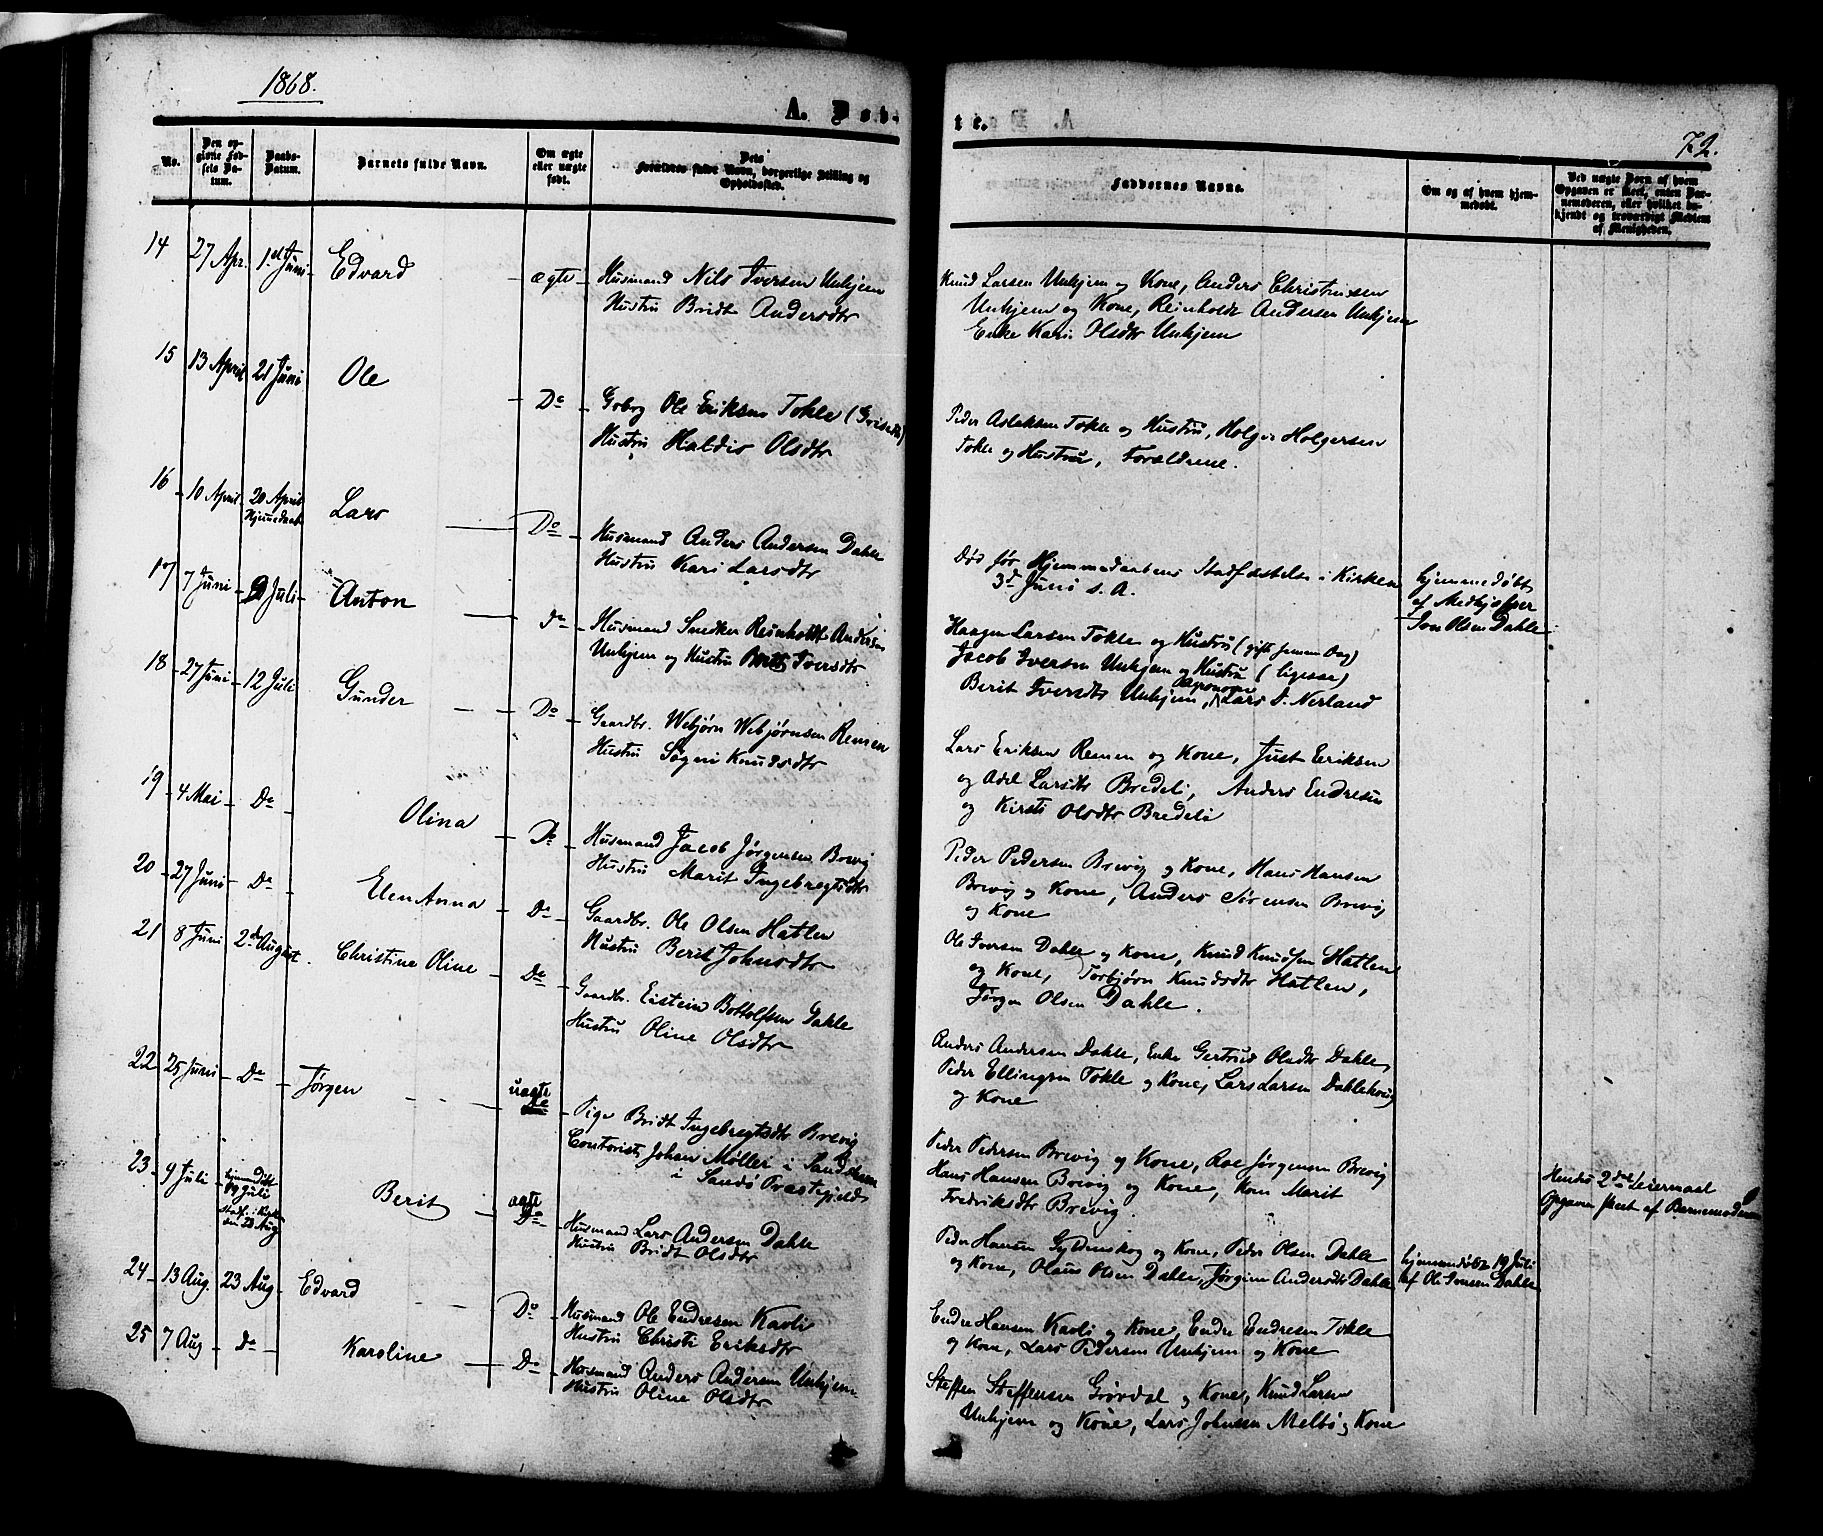 1868.
A. Føb-
te.
72.
No.
Den op-
givne Fød-
sels Da-
tum.
Daabs-
Datum.
Barnets fulde Navn.
Om ægte
eller uægte
født.
Dets
Forældres fulde Navn, borgerlige Stilling og
Opholdssted.
Faddernes Navne.
Om og af hvem hjem-
medøbt.
Ved uægte Børn af hvem
Opgaven er skeet, enten Bar-
nemoderen, eller hvilket be-
kjendt og troværdigt Medlem
af Menigheden.
14 27 Apr. 1ste Juni Edvard ægte Husmand Nils Iversen Unhjem
Hustru Bridt Andersdtr
Knud Larsen Unhjem og Kone, Anders Christensen
Unhjem og Kone, Reinholdt Andersen Unhjem
Enke Kari Olsdtr Unhjem
15 13 April 21 Juni Ole Do Gbrg Ole Eriksen Tokle
Hustru Haldis Olsdtr
Peder Aslaksen Tokle og Hustru, Holger Holgersen
Tokle og Hustru, Forældrene.
16 10 April 20 April
Hjemmedaab Lars Do Husmand Anders Andersen Dahle
Hustru Kari Larsdtr
Død før Hjemmedaabens Stadfæstelse i Kirken
3d Juni s. A.
hjemmedøbt
af Medhjelper
Jon Olsen Dahle
17 7 Juni Juli Anton do Husmand Snedker Reinholdt Andersen
Unhjem og Hustru Iversdtr
Haagen Larsen Tokle og Hustru (gift samme Dag)
Jacob Iversen Unhjem og Hustru (ligesaa)
Berit Iversdtr Unhjem, Lars I. Nerland
18 27 Juni 12 Juli Gunder Do Gaardbr. Webjørn Webjørnsen Remen
Hustru Søgni Knudsdtr
Lars Eriksen Remen og Kone, Just Eriksen
og Adel Larsdtr Bredeli, Anders Endresen
og Kirsti Olsdtr Bredeli
19 4 Mai Do Olina Do Husmand Jacob Jørgensen Brevig
Hustru Marit Ingebregtsdtr
Peder Pedersen Brevig og Kone, Hans Hansen
Brevig og Kone, Anders Sørensen Brevig
og Kone
20 27 Juni Do Elen Anna Do Gaardbr. Ole Olsen Hatlen
Hustru Berit Johnsdtr
Ole Iversen Dahle og Kone, Knud Knudsen Hatlen
og Kone, Torbjørn Knudsdtr Hatlen,
Jørgen Olsen Dahle.
21 8 Juni 2den August. Christine Oline Do Gaardbr. Eistein Bottolfsen Dahle
Hustru Oline Olsdtr
Anders Andersen Dahle, Enke Gertrud Olsdtr Dahle,
Peder Ellingsen Tokle og Kone, Lars Larsen Dahle
og Kone
22 25 Juni Do Jørgen uægte Pige Bridt Ingebregtsdtr Brevig
Contorist Johan Møller i
i Sands Præstegjeld
Peder Pedersen Brevig og Kone, Roe Jørgensen Brevig
Hans Hansen Brevig og Kone, Kone Marit
Fredriksdtr Brevig.
Hendes 2det Leiermaal
Opgaven skeet af Barnemoderen
23. 9 Juli hjemmedøbt
19 Juli
stadf. i Kirken
den 23 Aug Berit ægte
Do Husmand Lars Andersen Dahle
Hustru Bridt Olsdtr
Peder Hansen Gyldenskog og Kone, Peder Olsen Dahle
og Kone, Olaus Olsen Dahle, Jørgine Andersdtr Dahle
hjemmedøbt 19 Juli
af Ole Iversen Dahle
24 13 Aug. 23 Aug Edvard Do Husmand Ole Endresen Kavli
Hustru Christi Eriksdtr
Endre Hansen Kavli og Kone, Endre Endresen Tokle
og Kone, Lars Pedersen Unhjem og Kone
25 7 Aug Do Karoline Do Husmand Anders Andersen Unhjem
Hustru Oline Olsdtr
Steffen Steffensen Grøvdal og Kone, Knud Larsen
Unhjem og Kone, Lars Johnsen Melbø, Kone